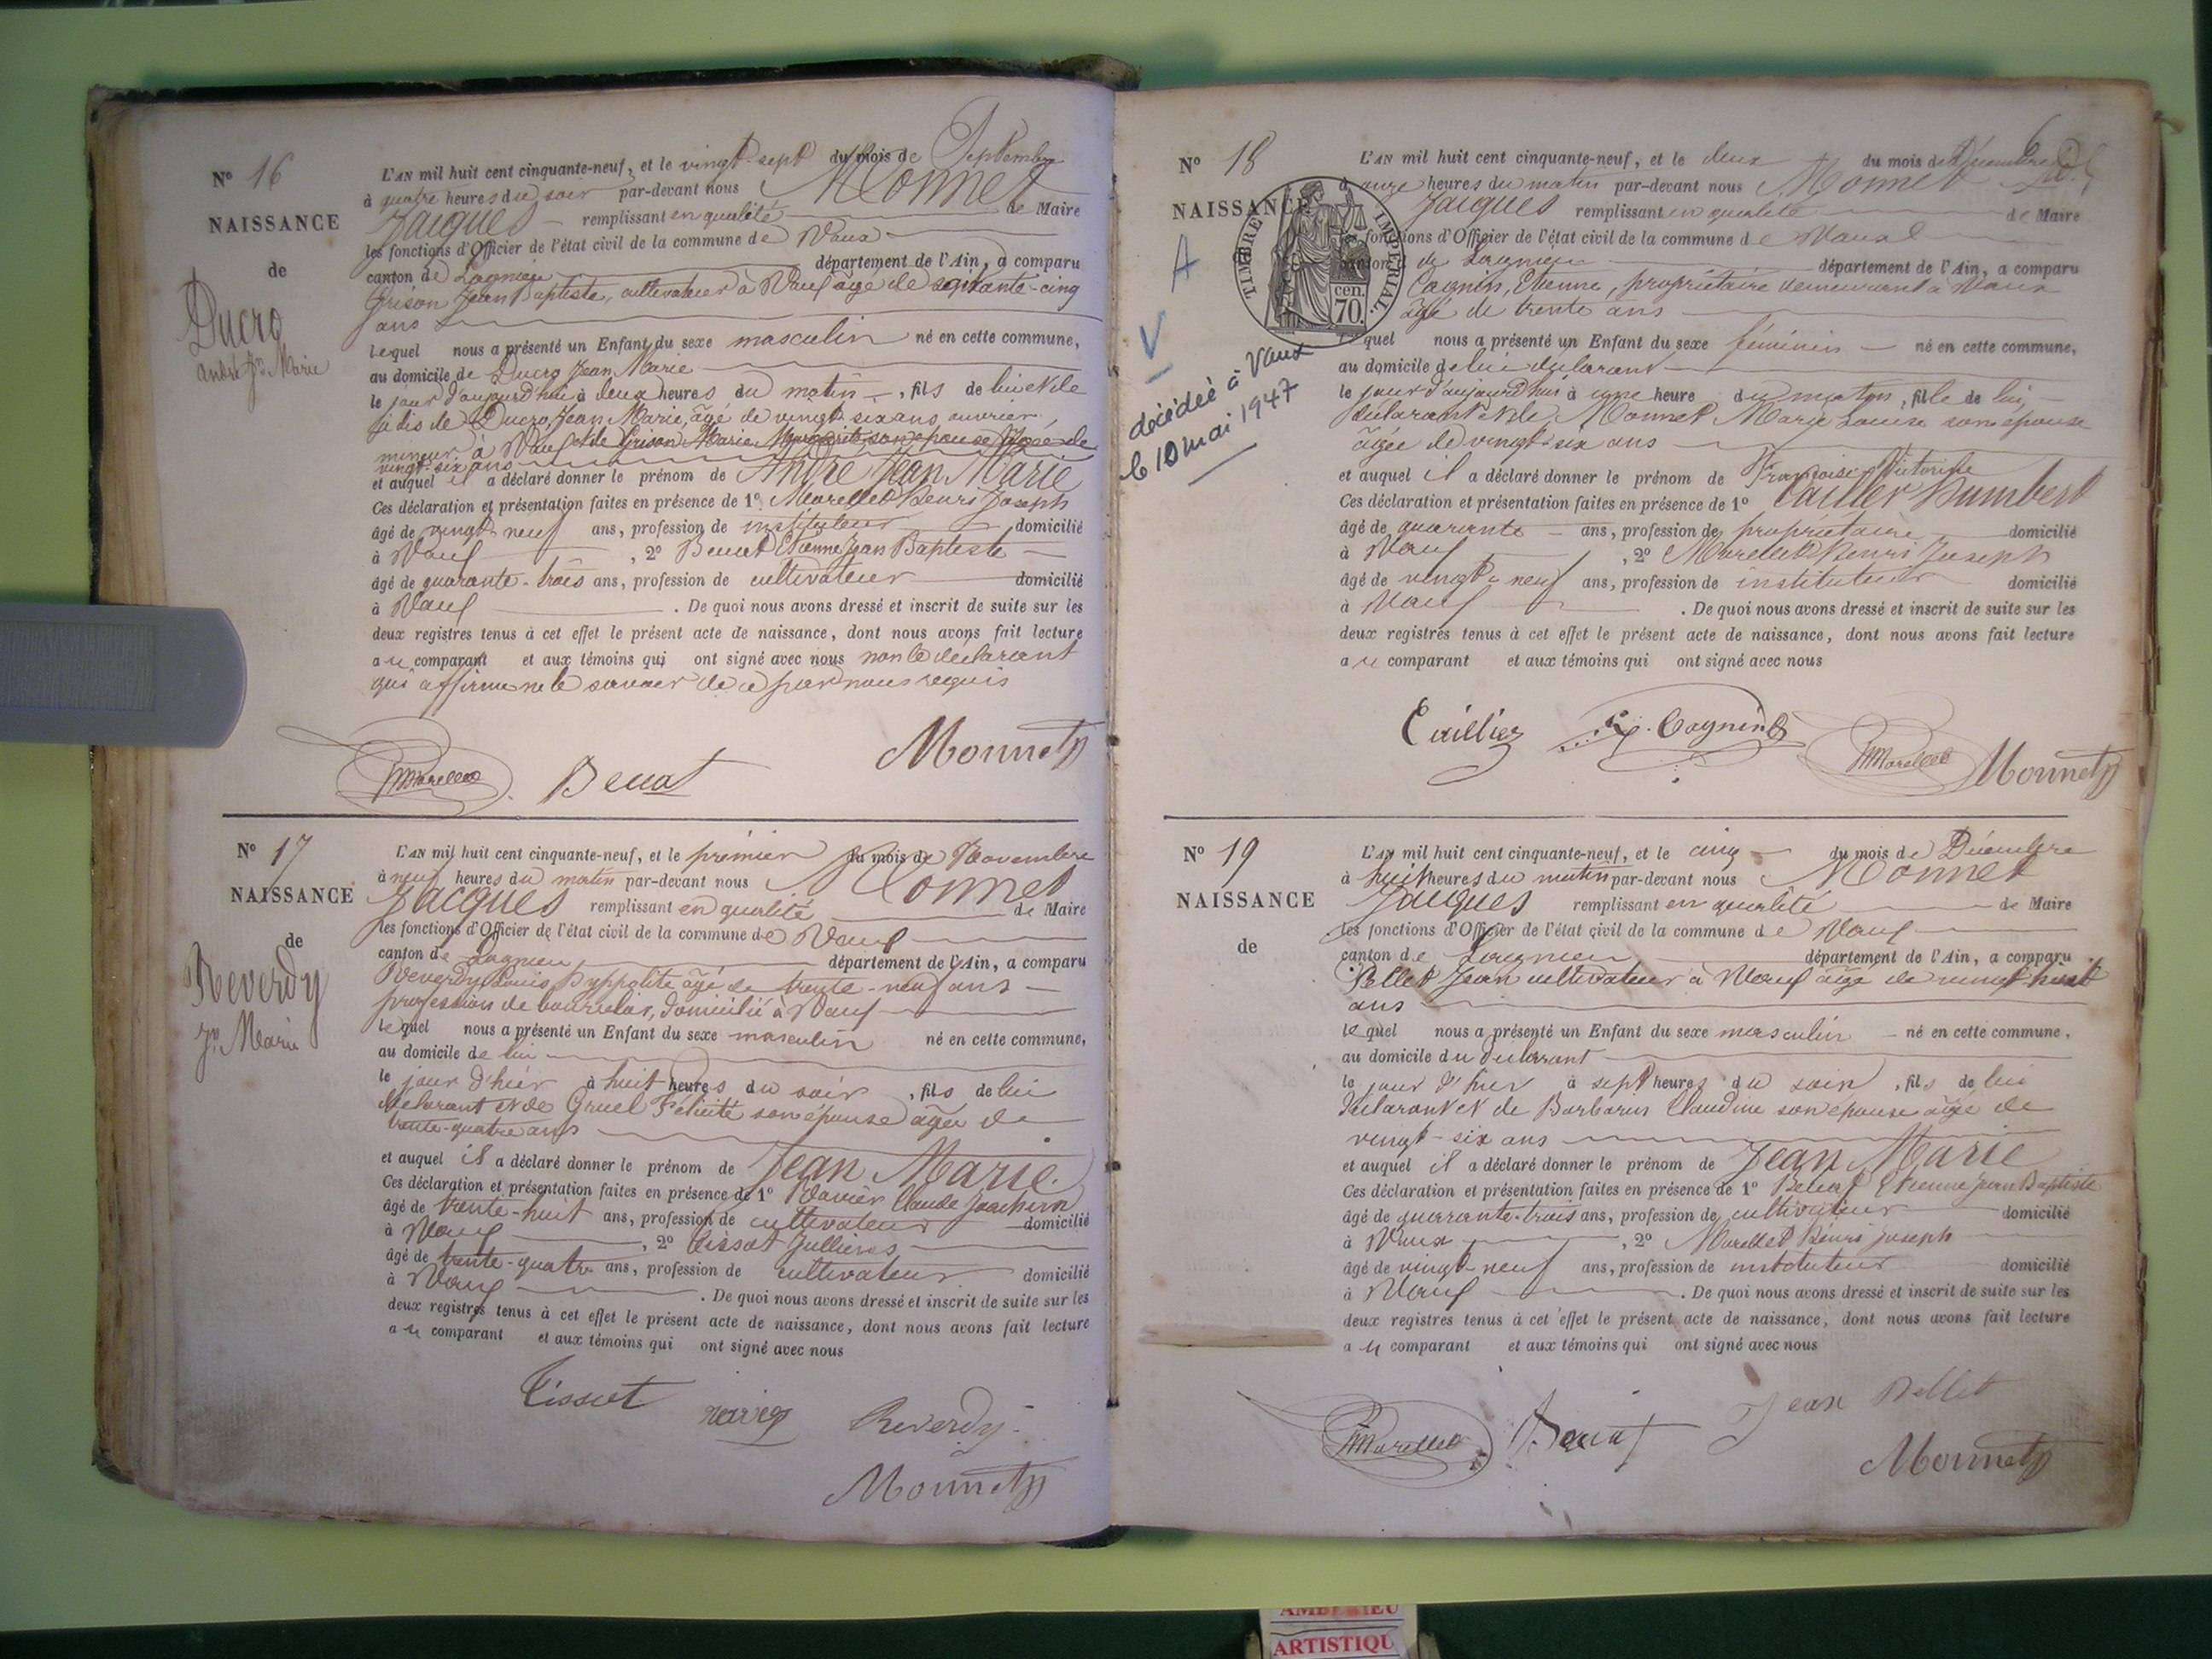 N° 16
NAISSANCE
de
Ducro
André Jn Marie
L'AN mil huit cent cinquante-neuf, et le vingt-sept du mois de Septembre
à quatre heures du soir par-devant nous Monnet
Jacques remplissant en qualité de Maire
les fonctions d'Officier de l'état civil de la commune de Vaux
canton de Lagnieu département de l'Ain, a comparu
Grison Jean Baptiste, cultivateur à Vaux âgé de soixante-cinq
ans
lequel nous a présenté un Enfant du sexe masculin né en cette commune,
au domicile de Ducro Jean Marie
le jour d'aujourd'hui à deux heures du matin, fils de
de Ducro, Jean Marie, âgé de vingt six ans, ouvrier
mineur à Vaux et de Grison Marie Marguerite son épouse âgée de
vingt-six ans
et auquel il a déclaré donner le prénom de André Jean Marie
Ces déclaration et présentation faites en présence de 1° Morellet Henri Joseph
âgé de vingt-neuf ans, profession de instituteur domicilié
à Vaux, 2° Benat Etienne Jean Baptiste
âgé de quarante-trois ans, profession de cultivateur domicilié
à Vaux. De quoi nous avons dressé et inscrit de suite sur les
deux registres tenus à cet effet le présent acte de naissance, dont nous avons fait lecture
au comparant et aux témoins qui ont signé avec nous non le déclarant
qui affirme ne le savoir de ce par nous requis
HMorellet Benat Monnet
N° 17
NAISSANCE
de
Reverdy
Jn Marie
L'AN mil huit cent cinquante-neuf, et le premier du mois de Novembre
à neuf heures du matin par-devant nous Monnet
Jacques remplissant en qualité de Maire
les fonctions d'Officier de l'état civil de la commune de Vaux
canton de Lagnieu département de l'Ain, a comparu
Reverdy Louis Hyppolite âgé de trente-neuf ans
profession de bourrelier, domicilié à Vaux
lequel nous a présenté un Enfant du sexe masculin né en cette commune,
au domicile de lui
le jour d'hier à huit heures du soir, fils de lui
déclarant et de Gruel Félicité son épouse âgée de
trente-quatre ans
et auquel il a déclaré donner le prénom de Jean Marie.
Ces déclaration et présentation faites en présence de 1° Claude Joachim
âgé de trente-huit ans, profession de cultivateur domicilié
à Vaux, 2° Tissot Jullieres
âgé de trente-quatre ans, profession de cultivateur domicilié
à Vaux. De quoi nous avons dressé et inscrit de suite sur les
deux registres tenus à cet effet le présent acte de naissance, dont nous avons fait lecture
au comparant et aux témoins qui ont signé avec nous
Tissot Reverdy
Monnet
6
N° 18
NAISSANCE
A
V
décédée à Vaux
le 10 mai 1947
TIMBRE IMPERIAL.
70 cen.
L'AN mil huit cent cinquante-neuf, et le deux du mois de Décembre
à onze heures du matin par-devant nous Monnet
Jacques remplissant en qualité de Maire
fonctions d'Officier de l'état civil de la commune de Vaux
canton de Lagnieu département de l'Ain, a comparu
Cagnin, Etienne, propriétaire demeurant à Vaux
âgé de trente ans
lequel nous a présenté un Enfant du sexe féminin né en cette commune,
au domicile de lui déclarant
le jour d'aujourd'hui à une heure du matin, fille de lui,
déclarant et de Monnet Marie Louise son épouse
âgée de vingt-six ans
et auquel il a déclaré donner le prénom de Françoise Victorine
Ces déclaration et présentation faites en présence de 1° Cuillier Humbert
âgé de quarante ans, profession de propriétaire domicilié
à Vaux, 2° Morellet Henri Joseph
âgé de vingt-neuf ans, profession de instituteur domicilié
à Vaux. De quoi nous avons dressé et inscrit de suite sur les
deux registres tenus à cet effet le présent acte de naissance, dont nous avons fait lecture
au comparant et aux témoins qui ont signé avec nous
Cuillier Cagnin HMorellet Monnet
N° 19
NAISSANCE
de
L'AN mil huit cent cinquante-neuf, et le cinq du mois de Décembre
à huit heures du matin par-devant nous Monnet
Jacques remplissant en qualité de Maire
les fonctions d'Officier de l'état civil de la commune de Vaux
canton de Lagnieu département de l'Ain, a comparu
Pellet Jean cultivateur à Vaux âgé de vingt-huit
ans
lequel nous a présenté un Enfant du sexe masculin né en cette commune,
au domicile du déclarant
le jour d'hier à sept heures du soir, fils de lui
déclarant et de Barbarin Claudine son épouse âgée de
vingt-six ans
et auquel il a déclaré donner le prénom de Jean Marie
Ces déclaration et présentation faites en présence de 1° Benat Etienne Jean Baptiste
âgé de quarante-trois ans, profession de cultivateur domicilié
à Vaux, 2° Morellet Henri Joseph
âgé de vingt-neuf ans, profession de instituteur domicilié
à Vaux. De quoi nous avons dressé et inscrit de suite sur les
deux registres tenus à cet effet le présent acte de naissance, dont nous avons fait lecture
au comparant et aux témoins qui ont signé avec nous
HMorellet Benat Jean Pellet
Monnet
AMBERIEU
ARTISTIQU